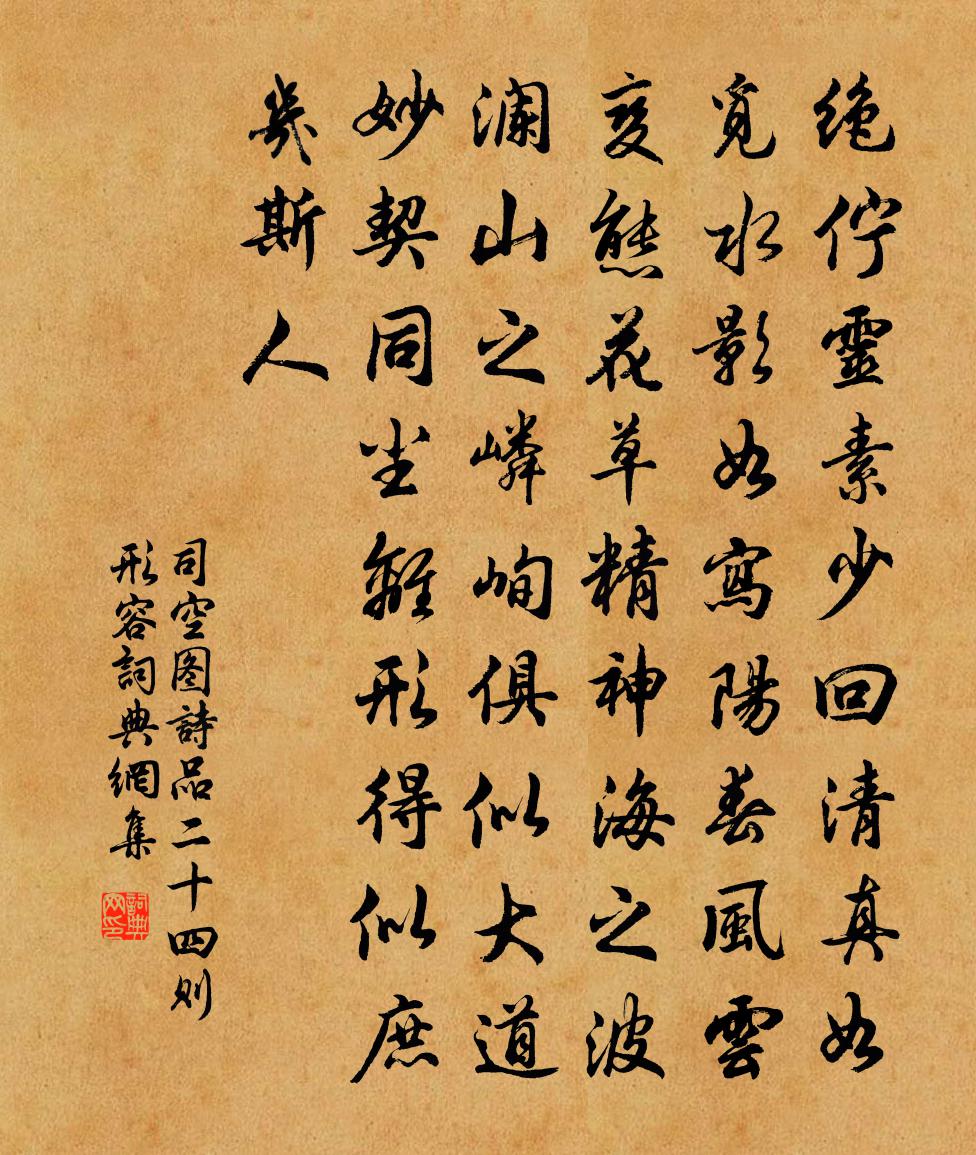 绝佇靈素少回清真如
覓水影如寫陽春風雲
變態花草精神海之波
瀾山之嶙峋俱似大道
妙契同坐離形得似庶
幾斯人
司空图詩品二十四则
形容詞典網集
詞典网印